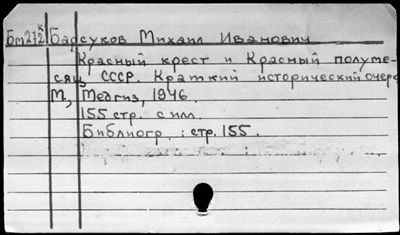 Бм272к Барсуков Михаил Иванович
Красный крест и Красный полуме-
сяц СССР. Краткий исторический очерк
М., Медгиз, 1946.
155 стр. с илл.
Библиогр.: стр. 155.